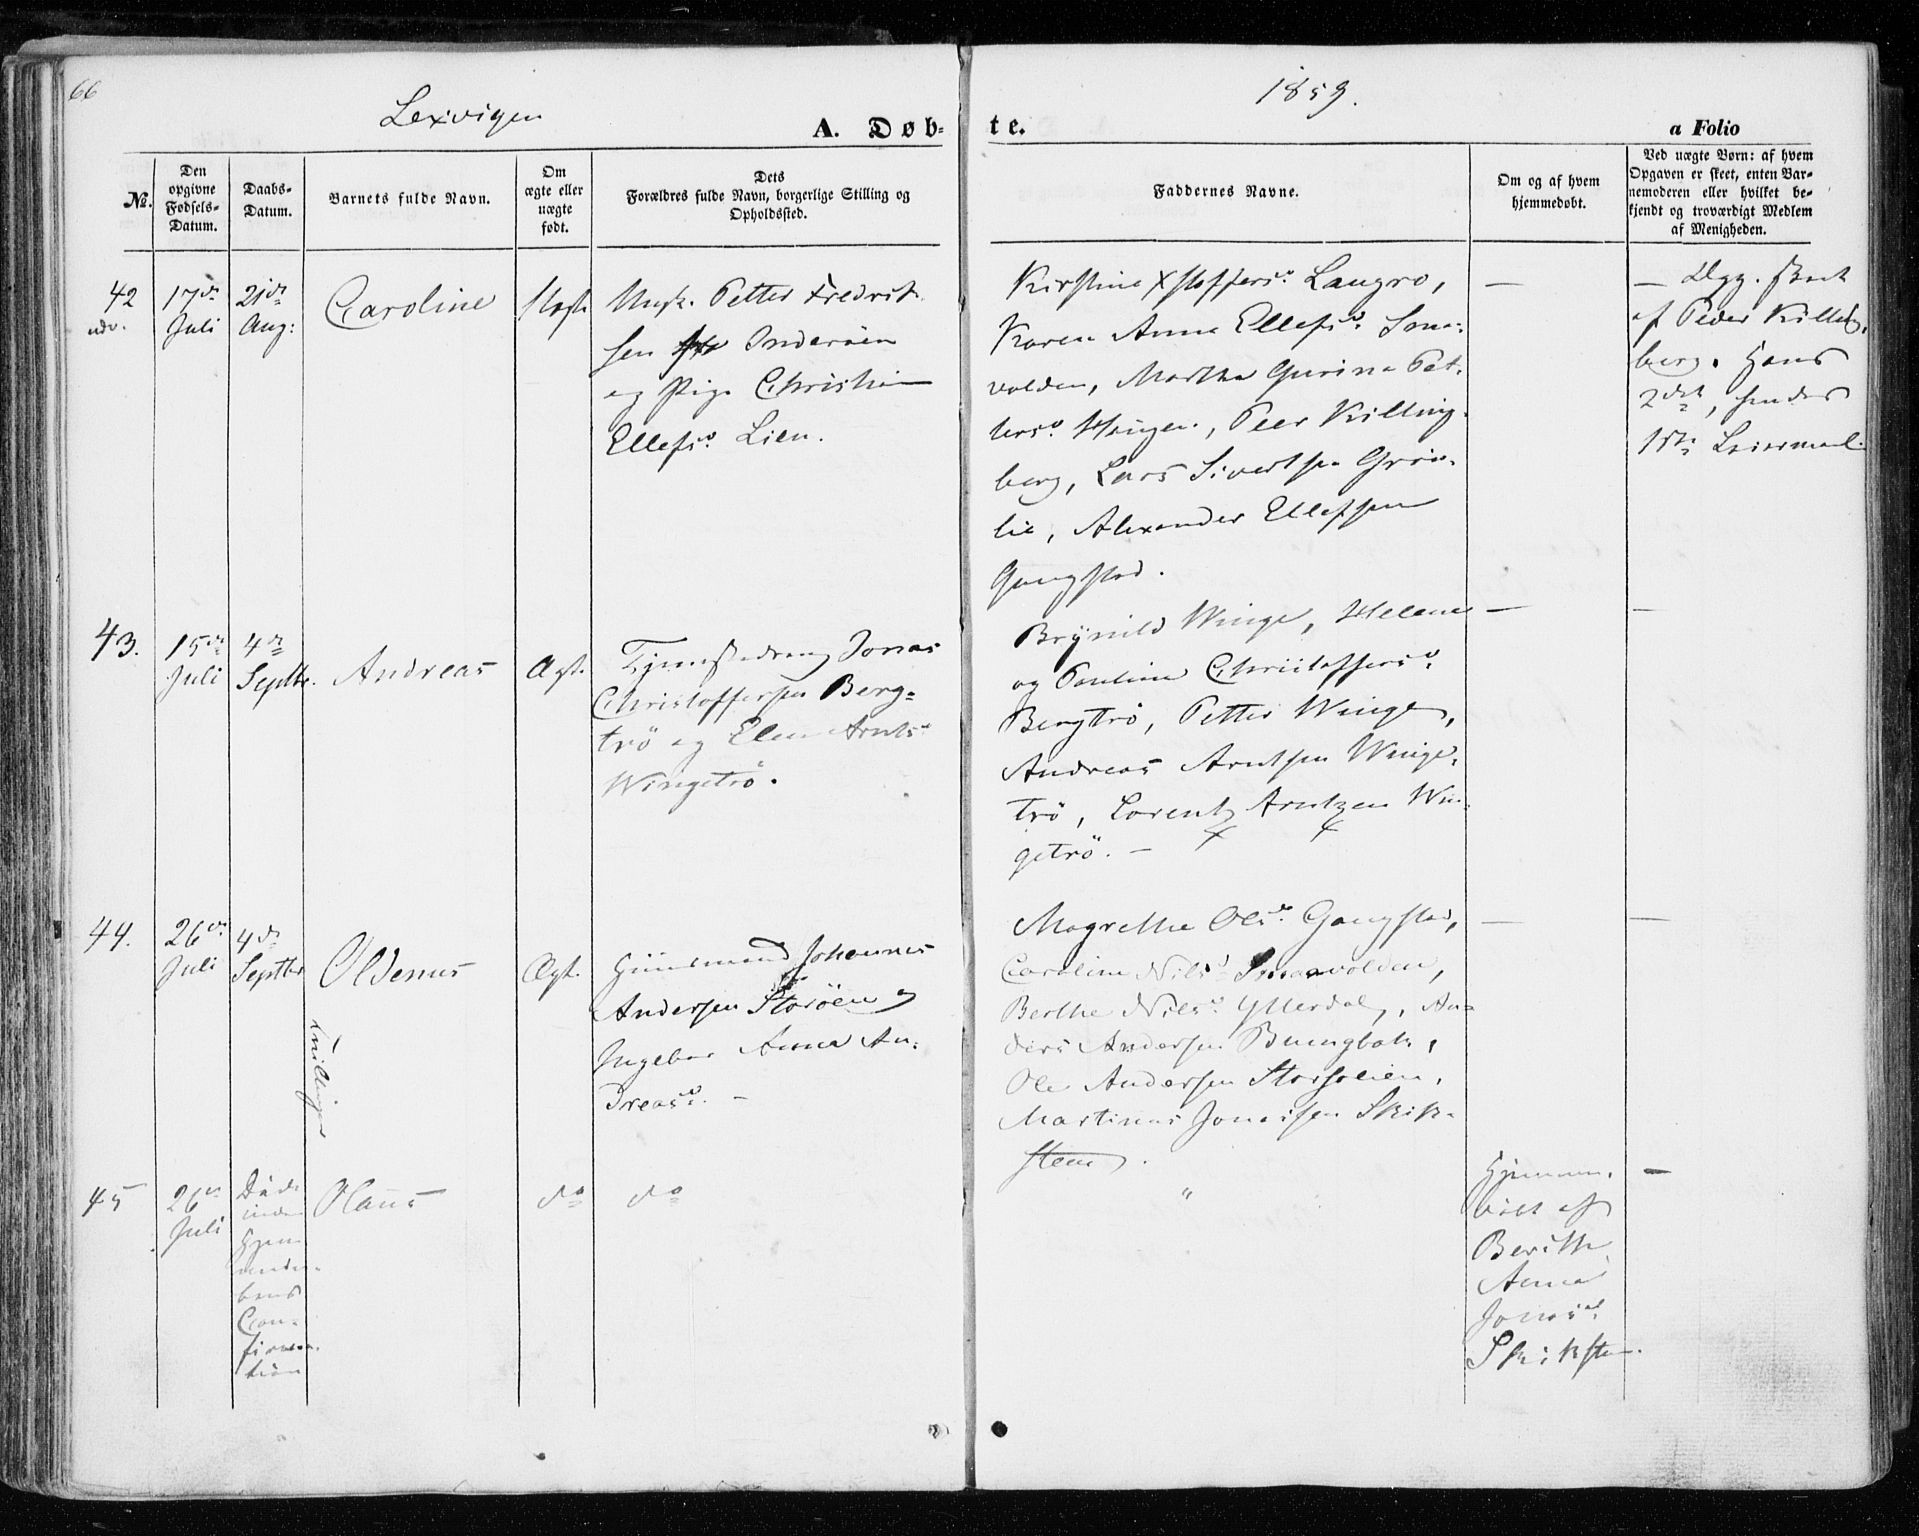 66
Lexvigen
1859.
A. Døb-
te.
a Folio
No.
Den opgivne Fødsels-Datum.
Daabs-Datum.
Barnets fulde Navn.
Om ægte eller uægte født.
Dets
Forældres fulde Navn, borgerlige Stilling og
Opholdssted.
Faddernes Navne.
Om og af hvem
hjemmedøbt.
Ved uægte Børn: af hvem
Opgaven er skeet, enten Bar-
nemoderen eller hvilket be-
kjendt og troværdigt Medlem
af Menigheden.
42
17de
Juli
21de
Aug:
Caroline
Uægt.
Ungk. Petter Fredrik-
sen Inderøen
og Pige Christine
Ellefsd. Lien.
Kirstine Xstoffersd. Langro,
Karen Anna Ellefsd. Sme-
volden, Martha Gurine Pet-
tersd. Haugen, Peer Killing-
berg, Lars Sivertsen Grøn-
lie, Alexander Ellefsen
Gangstad.
—
— Opg. skeet
af Peder Killing-
berg. Hans
2det, hendes
1ste Leiermaal.
43.
15de
Juli
4de
Septbr.
Andreas
Ægt.
Tjenestedreng Jonas
Christoffersen Berg-
trö og Elen Arntsd.
Wingetrö.
Brynild Winge, Helene
og Pauline Christoffersd.
Bergtrö, Petter Winge,
Andreas Arntsen Winge-
trö, Lorentz Arntzen Win-
getrö. —
—
—
44.
26de
Juli
4de
Septbr
Oldenus
Ægt.
Huusmand Johannes
Andersen Storöen og
Ingebor Anna An-
dreasd. —
Tvillinger
Magrethe Olsd. Gangstad,
Caroline Nilsd. Smaavolden,
Berthe Nilsd. Ytterdal, An-
ders Andersen
Ole Andersen Storsolien,
Martinus Jonassen Skik-
steen.
—
—
45
26de
Juli
Døde
inden
Hjem-
medaa-
bens
Con-
firma-
tion
Olaus
do
do
"
Hjemme-
døbt af
Berithe
Anna
Jonasd.
Skikste-
—